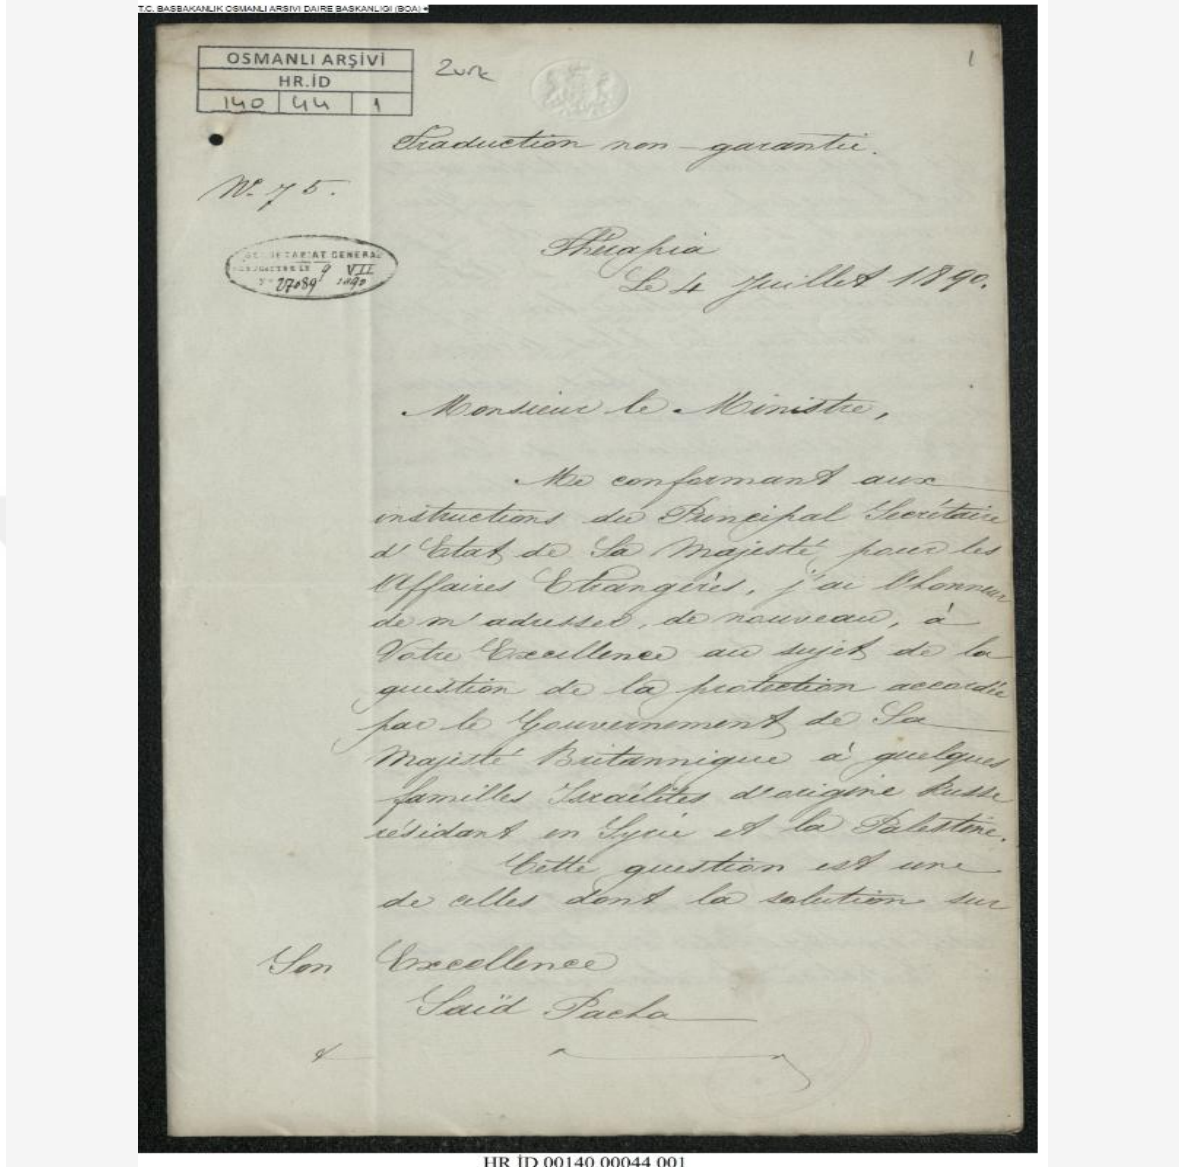 T.C. BASBAKANLIK OSMANLI ARSIVI DAIRE BASKANLIGI (BOA)
OSMANLI ARŞİVİ
HR.İD
140 44 1
1
Traduction non-garantie.
No. 75.
SECRETARIAT GENERAL
9 VII
No 27089 1890
Thérapia
Le 4 Juillet 1890.
Monsieur le Ministre,
Me conformant aux
instructions du Principal Secrétaire
d'Etat de Sa Majesté pour les
Affaires Etrangères, j'ai l'honneur
de m'adresser, de nouveau, à
Votre Excellence au sujet de la
question de la protection accordée
par le Gouvernement de Sa
Majesté Britannique à quelques
familles Israélites d'origine Russe
résidant en Syrie et la Palestine.
Cette question est une
de celles dont la solution sur
Son Excellence
Saïd Pacha
HR İD 00140 00044 001